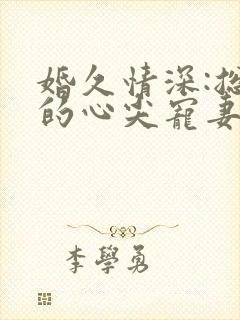 婚久情深:
的心尖寵妻
李學勇